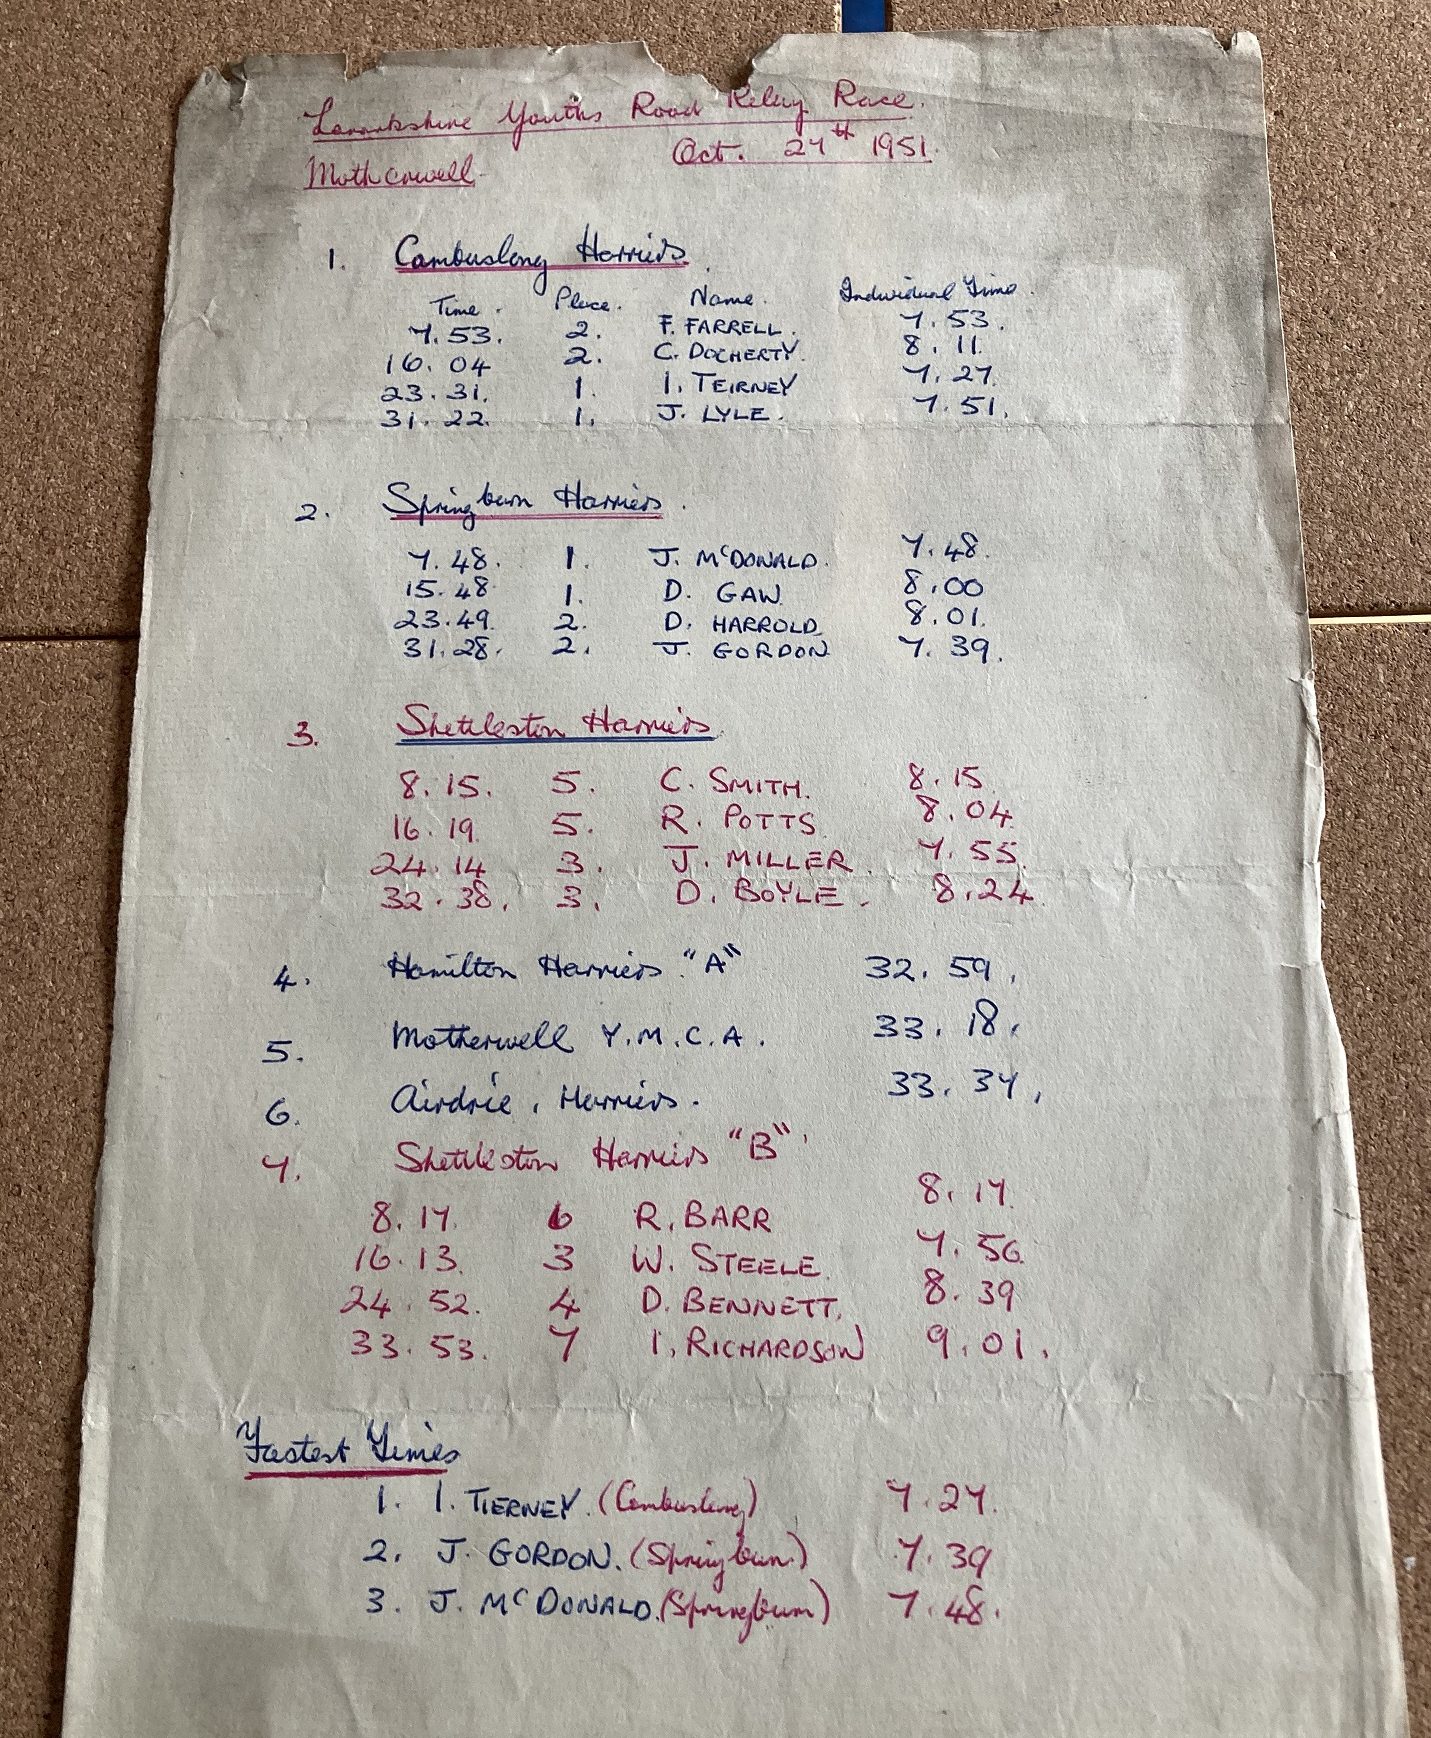 Lanarkshire Youths Road Relay Race.
Motherwell. Oct. 27th 1951.
1. Cambuslang Harriers.
Time. Place. Name. Individual Time.
7.53. 2. F. FARRELL. 7.53.
16.04 2. C. DOCHERTY. 8.11.
23.31. 1. I. TEIRNEY 7.27.
31.22. 1. J. LYLE. 7.51.
2. Springburn Harriers.
7.48. 1. J. McDONALD. 7.48.
15.48. 1. D. GAW. 8.00
23.49. 2. D. HARROLD. 8.01.
31.28. 2. J. GORDON. 7.39.
3. Shettleston Harriers.
8.15. 5. C. SMITH. 8.15.
16.19. 5. R. POTTS. 8.04.
24.14 3. J. MILLER. 7.55.
32.38. 3. D. BOYLE. 8.24.
4. Hamilton Harriers. "A" 32.59.
5. Motherwell Y.M.C.A. 33.18.
6. Airdrie. Harriers. 33.37.
7. Shettleston Harriers "B".
8.17. 6 R. BARR 8.17.
16.13. 3 W. STEELE. 7.56.
24.52. 4 D. BENNETT. 8.39
33.53. 7 I. RICHARDSON 9.01.
Fastest Times
1. I. TIERNEY. (Cambuslang) 7.27.
2. J. GORDON. (Springburn) 7.39
3. J. McDONALD. (Springburn) 7.48.